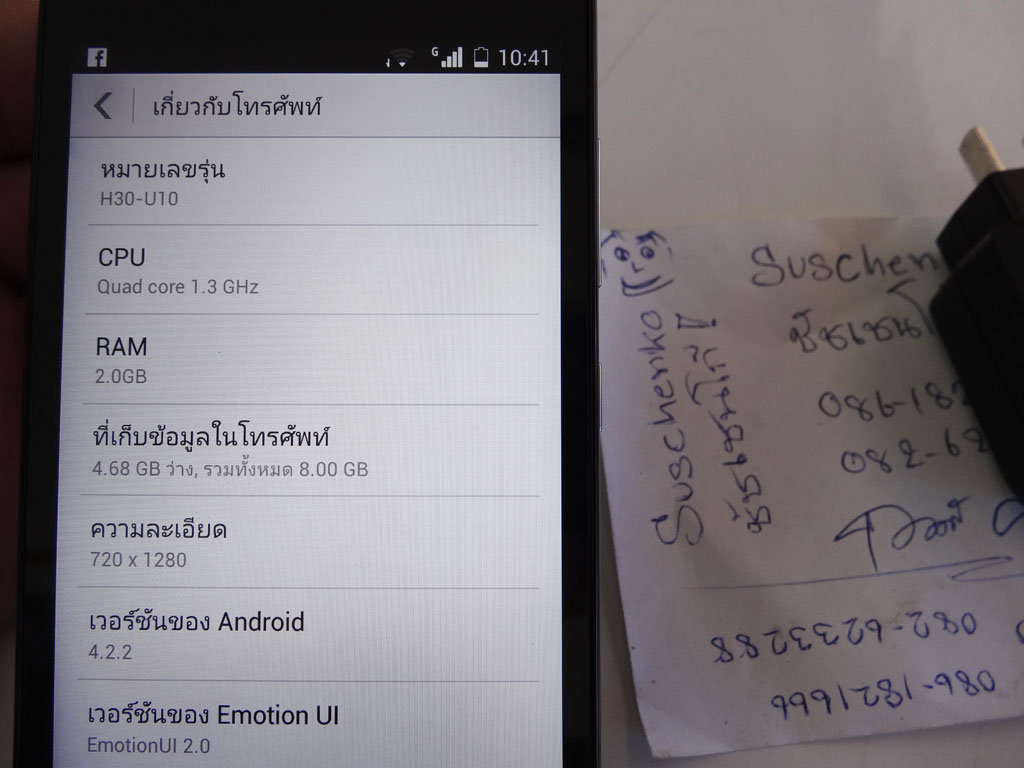 10:41
เกี่ยวกับโทรศัพท์
หมายเลขรุ่น
H30-U10
CPU
Quad core 1.3 GHz
RAM
2.0GB
ที่เก็บข้อมูลในโทรศัพท์
4.68 GB ว่าง, รวมทั้งหมด 8.00 GB
ความละเอียด
720 x 1280
เวอร์ชันของ Android
4.2.2
เวอร์ชันของ Emotion UI
EmotionUI 2.0
Suschen
ชัชเชนโ
086-182
082-62
Suschenko
ชัชเชนโก้
082-6233288
086-1821666